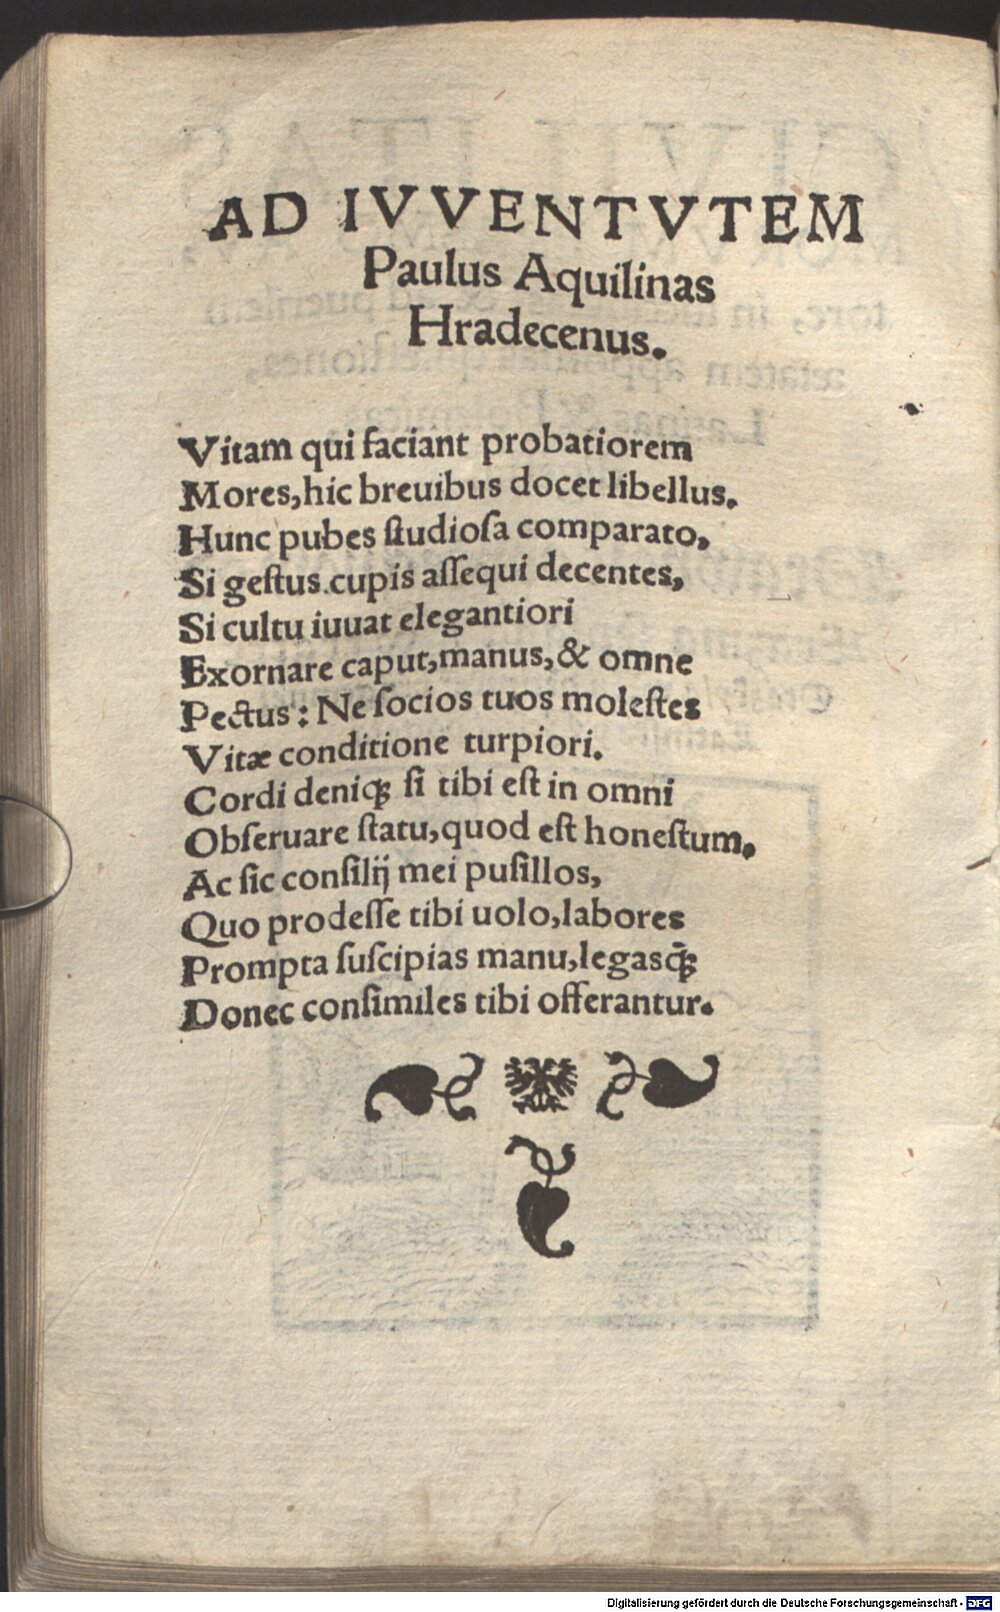 AD IVVENTVTEM
Paulus Aquilinas
Hradecenus.
Vitam qui faciant probatiorem
Mores, hic breuibus docet libellus.
Hunc pubes ſtudioſa comparato,
Si geſtus cupis aſſequi decentes,
Si cultu iuuat elegantiori
Exornare caput, manus, & omne
Pectus: Ne ſocios tuos moleſtes
Vitæ conditione turpiori.
Cordi deniq; ſi tibi eſt in omni
Obſeruare ſtatu, quod eſt honeſtum.
Ac ſic conſilij mei puſillos,
Quo prodeſſe tibi uolo, labores
Prompta ſuſcipias manu, legasq́;
Donec conſimiles tibi offerantur.
Digitalisierung gefördert durch die Deutsche Forschungsgemeinschaft - DFG